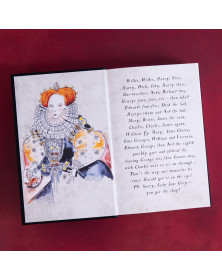 Willie, Willie, Harry, Stee,
Harry, Dick, John, Harry three.
One two three Neds, Richard two,
Harrys four, five, six... then who?
Edwards four, five, Dick the bad,
Harrys twain and Ned the lad.
Mary, Bessie, James the vain,
Charlie, Charlie, James again.
William & Mary, Anna Gloria,
Four Georges, William and Victoria.
Edward, George, then Ned the eighth
quickly goes and
leaving George six, then Lizzie two,
with Charlie next to see us through...
That's the way our monarchs lie
since Harold got it in the eye!
Ps. Sorry, Lady Jane Grey –
you got the chop!